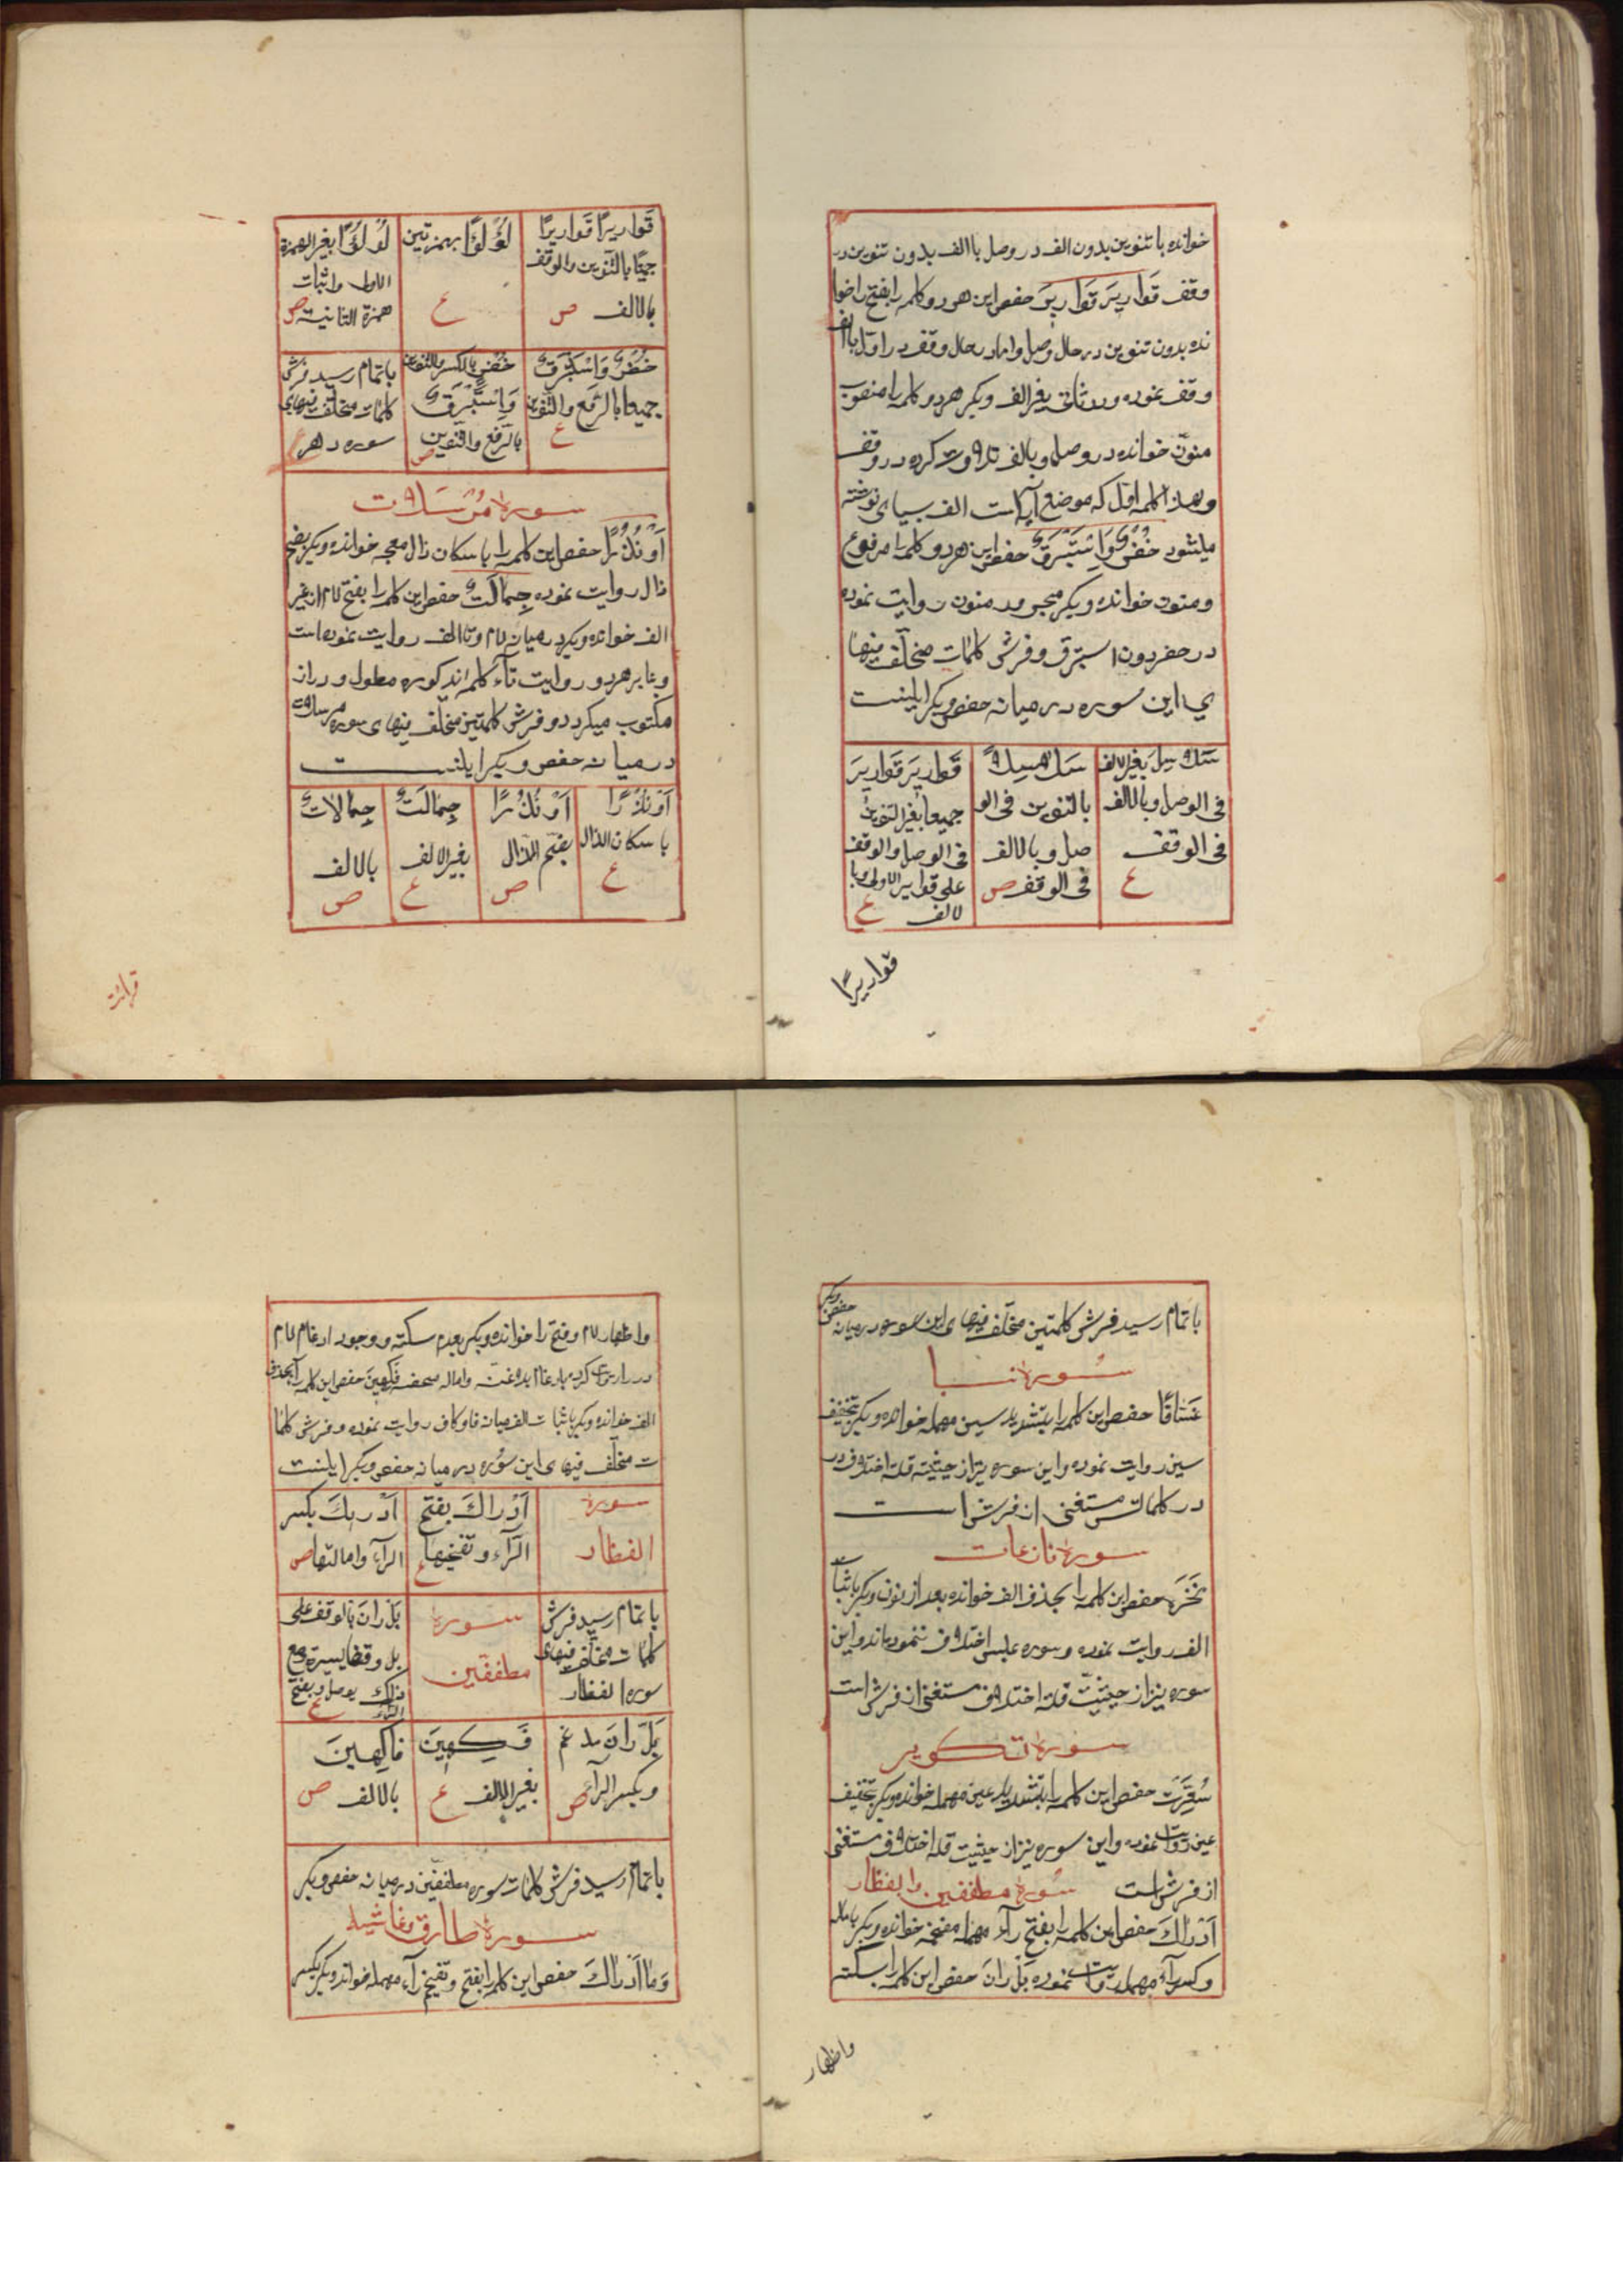 خوانده با تنوین بدون الف در وصل با الف بدون تنوین در
وقف قَوَارِیرَ قَوَارِیرَ حفص این هر دو کلمه را بفتح را خوا
نده بدون تنوین در حال وصل و اما در حال وقف در اول با الف
وقف نموده و در ثانی بغیر الف و بکر هر دو کلمه را منصوب
منوّن خوانده در وصل و بالف تلاوت کرده در وقف
و بعد از کلمه اول که موضع آیه است الف بسیاهی نوشته
میشود خُضْرٌ وَاِسْتَبْرَقٌ حفص این هر دو کلمه را مرفوع
و منون خوانده و بکر مجرور منون روایت نموده
در خضر دون استبرق و فرش کلمات مختلف فیها
ی این سوره در میانه حفص و بکر اینست
سَلَاسِلَ بغیر الالف
فی الوصل و بالالف
فی الوقف
ع
سَلَاسِلًا
بالتنوین فی الو
صل و بالالف
فی الوقف ص
قَوَارِیرَ قَوَارِیرَ
جمیعا بغیر التنوین
فی الوصل والوقف
علی قواریر الاولی با
لالف ع
قواریرًا
قَوَارِیرًا قَوَارِیرًا
جمیعًا بالتنوین والوقف
بالالف ص
لُؤْلُؤًا بهمزتین
ع
لُوْلُؤًا بغیر الهمزة
الاولی و اثبات
همزة الثانیة ص
خُضْرٌ وَاِسْتَبْرَقٌ
جمیعا بالرفع والتنوین
ع
خُضْرٍ بالکسر والتنوین
وَاِسْتَبْرَقٌ
بالرفع والتنوین ص
باتمام رسید فرش
کلمات مختلف فیهای
سوره دهر
سورة مرسلات
اَوْ نُذْرًا حفص این کلمه را باسکان ذال معجه خوانده و بکر بضم
ذال روایت نموده جِمَالَتٌ حفص این کلمه را بفتح لام از غیر
الف خوانده و بکر در میان لام و تا الف روایت نموده است
و بنا بر هر دو روایت تآء کلمه مذکوره مطول و دراز
مکتوب میکردد و فرش کلمتین مختلف فیهای سوره مرسلات
در میانه حفص و بکر اینست
اَوْ نُذْرًا
باسکان الذال
ع
اَوْ نُذُرًا
بفتح الذال
ص
جِمَالَتٌ
بغیر الالف
ع
جِمَالَاتٌ
بالالف
ص
قرائت
باتمام رسید فرش کلمتین مختلف فیهای این سوره در میانه حفص و بکر
سورة نبا
غَسَّاقًا حفص این کلمه را بتشدید سین مهمله خوانده و بکر بتخفیف
سین روایت نموده و این سوره نیز از حیثیته قلة اختلاف در
در کلماتش مستغنی از فرش است
سورة نازعات
نَخِرَةً حفص این کلمه را بحذف الف خوانده بعد از نون و بکر باثبا
الف روایت نموده و سوره عبس اختلاف ننموده اند و این
سوره نیز از حیثیت قلة اختلاف مستغنی از فرش است
سورة تکویر
سُعِّرَتْ حفص این کلمه را بتشدید عین مهمله خوانده و بکر بتخفیف
عین روایت نموده و این سوره نیز از حیثیت قلة اختلاف مستغنی
از فرش است سورة مطففین و انفطار
اَدْرٰاكَ حفص این کلمه را بفتح رآء مهمله مفخمه خوانده و بکر باماله
و کسر رآء مهمله روایت نموده بَلْ رَانَ حفص این کلمه را بسکته
واظهار
واظهار لام و فتح را خوانده و بکر بعدم سکته و وجود ادغام لام
در را روایت کرده بادغام بلا غنه و اماله محضه فَکِهِینَ حفص این کلمه را بحذف
الف خوانده و بکر باثبات الف میانه فا و کاف روایت نموده و فرش کلما
ت مختلف فیهای این سوره در میانه حفص و بکر اینست
سورة
انفطار
اَدْرَاكَ بفتح
الرّآء و تفخیمها ع
اَدْرِیكَ بکسر
الرآء و امالتها ص
باتمام رسید فرش
کلمات مختلف فیهای
سوره انفطار
سورة
مطففین
بَلْ رَانَ بالوقف علی
بل وقفا یسیرة مع
ذلك یوصل و بفتح
الرآء ع
بَل رانَ مدغم
و بکسر الرآء ص
فَکِهِینَ
بغیر الالف ع
فَاکِهِینَ
بالالف ص
باتمام رسید فرش کلمات سوره مطففین در میانه حفص و بکر
سورة طارق و غاشیه
وَمَا اَدْرٰاكَ حفص این کلمه را بفتح و تفخیم رآء مهمله خوانده و بکر بکسر